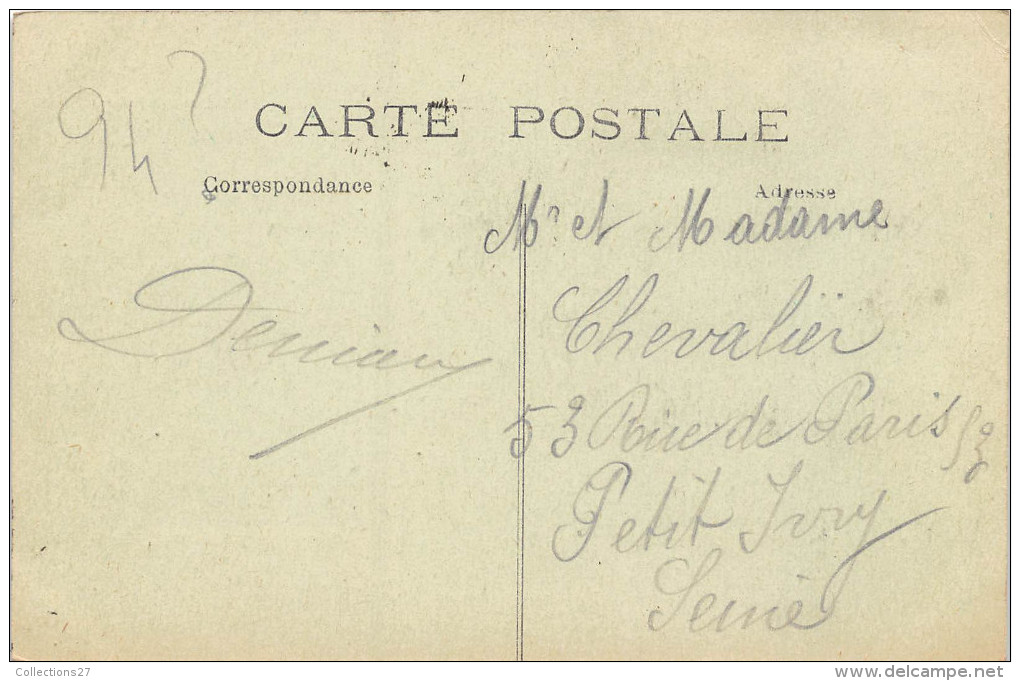 94 ?
CARTE POSTALE
Correspondance
Adresse
Mr et Madame
Chevalier
53 Rue de Paris 53
Petit Ivry
Seine
Collections27
www.delcampe.net